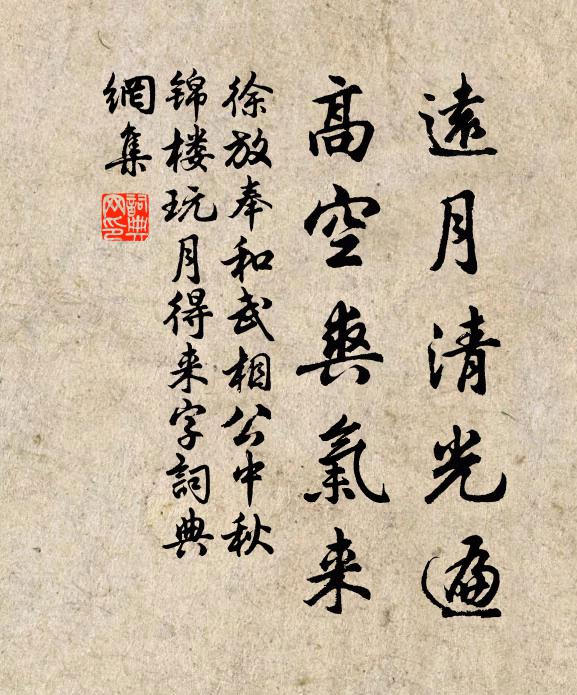 遠月清光遍
高空爽氣来
徐放奉和武相公中秋
锦楼玩月得来字詞典
網集
詞典
网印